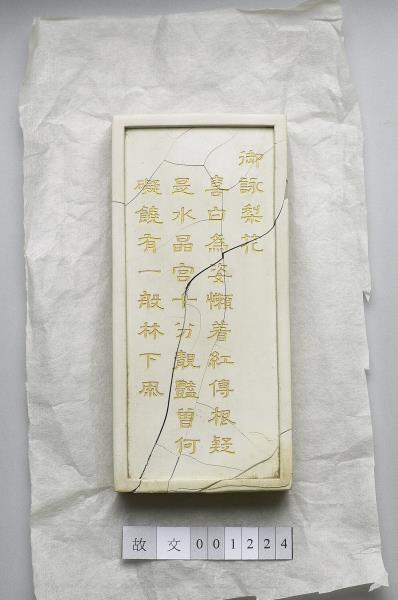 御詠梨花
喜白為姿懶着紅傳根疑
是水晶宮十分靚豔曽何
礙饒有一般林下風
故文001224